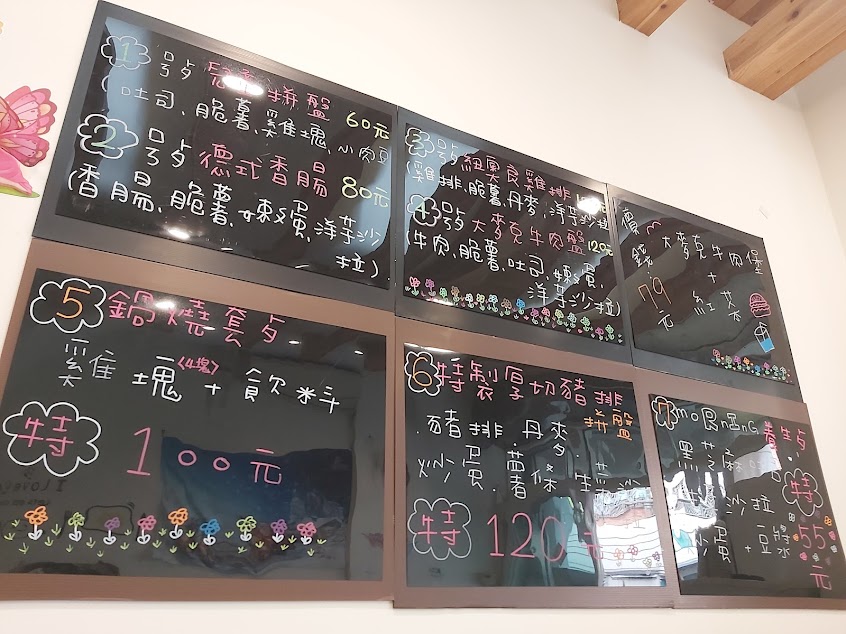 1 号 兒童拼盤 60元
(吐司、脆薯、雞塊、小肉豆
2 号 德式香腸 80元
(香腸、脆薯、嫩蛋、洋芋沙
拉)
3 号 紐奧良雞排
(雞排、脆薯、丹麥、洋芋沙拉
4 号 大麥克牛肉盤 120元
(牛肉、脆薯、吐司、嫩蛋、
洋芋沙拉)
大麥克牛肉堡
+
紅茶
79
元
5 鍋燒套夕
雞塊<4塊>+飲料
特 100元
6 特製厚切豬排
拼盤
豬排.丹麥.
炒蛋.薯條.生菜沙
特 120元
7 MORNING 養生夕
黑芝麻
沙拉
炒蛋+豆漿
特
55
元